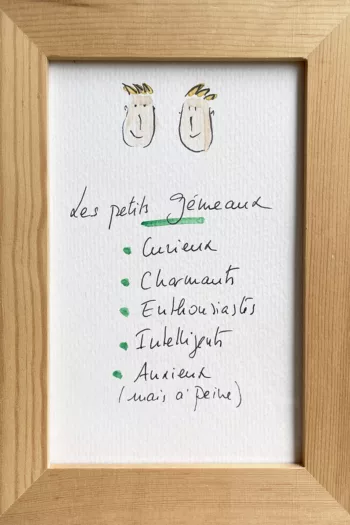 Les petits gémeaux
Curieux
Charmants
Enthousiastes
Intelligents
Anxieux
(mais à peine)